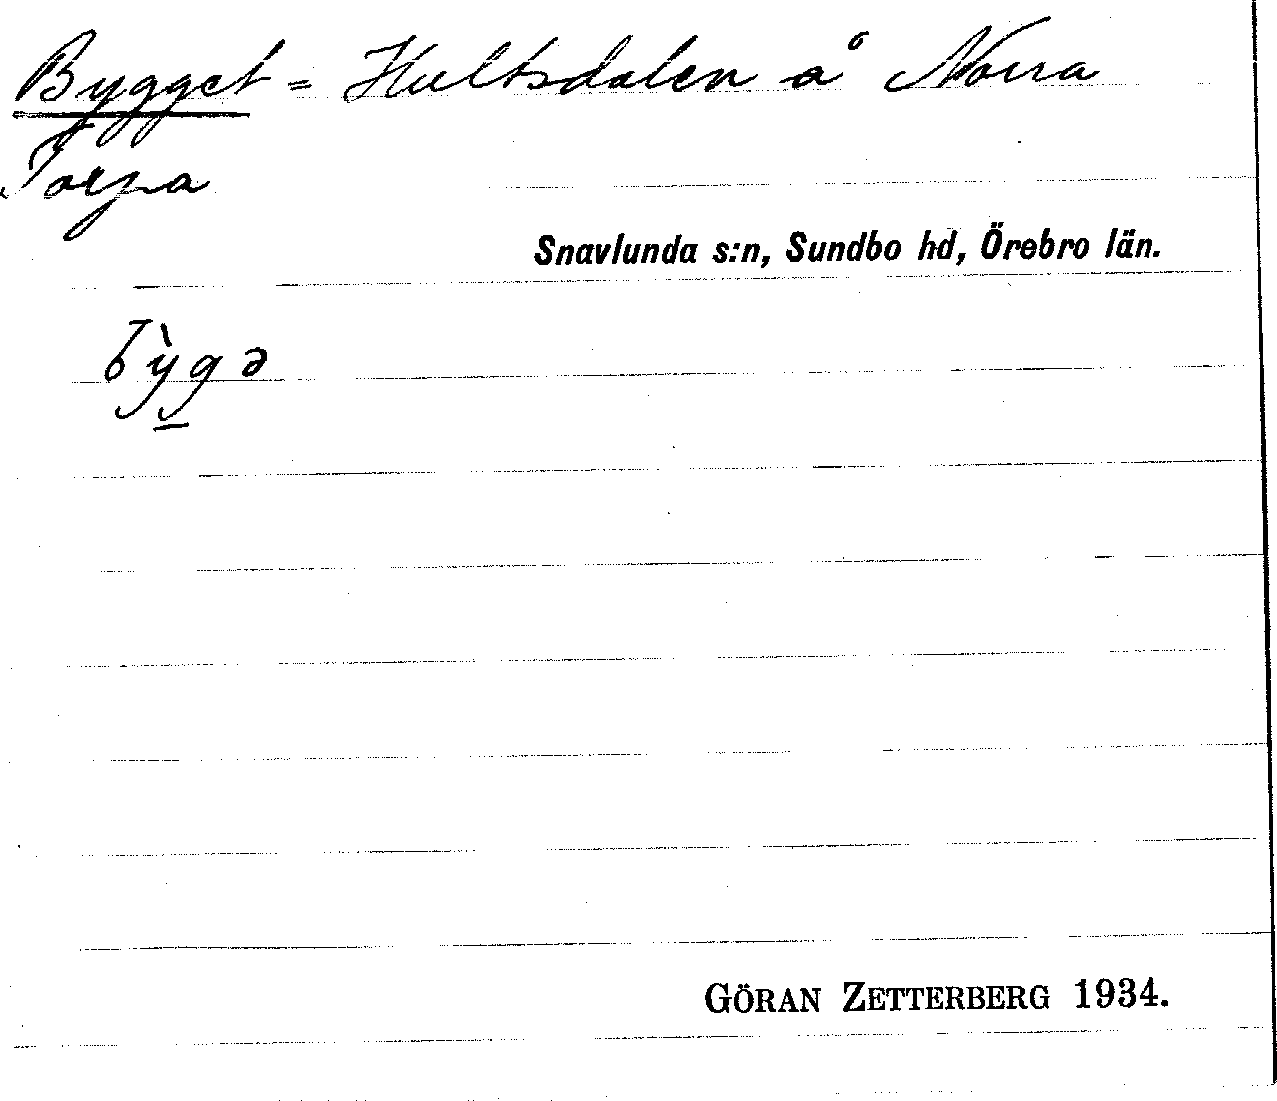 Bygget = Hultsdalen å Norra
Torpa
Snavlunda s:n, Sundbo hd, Örebro län.
bỳgə
GÖRAN ZETTERBERG 1934.